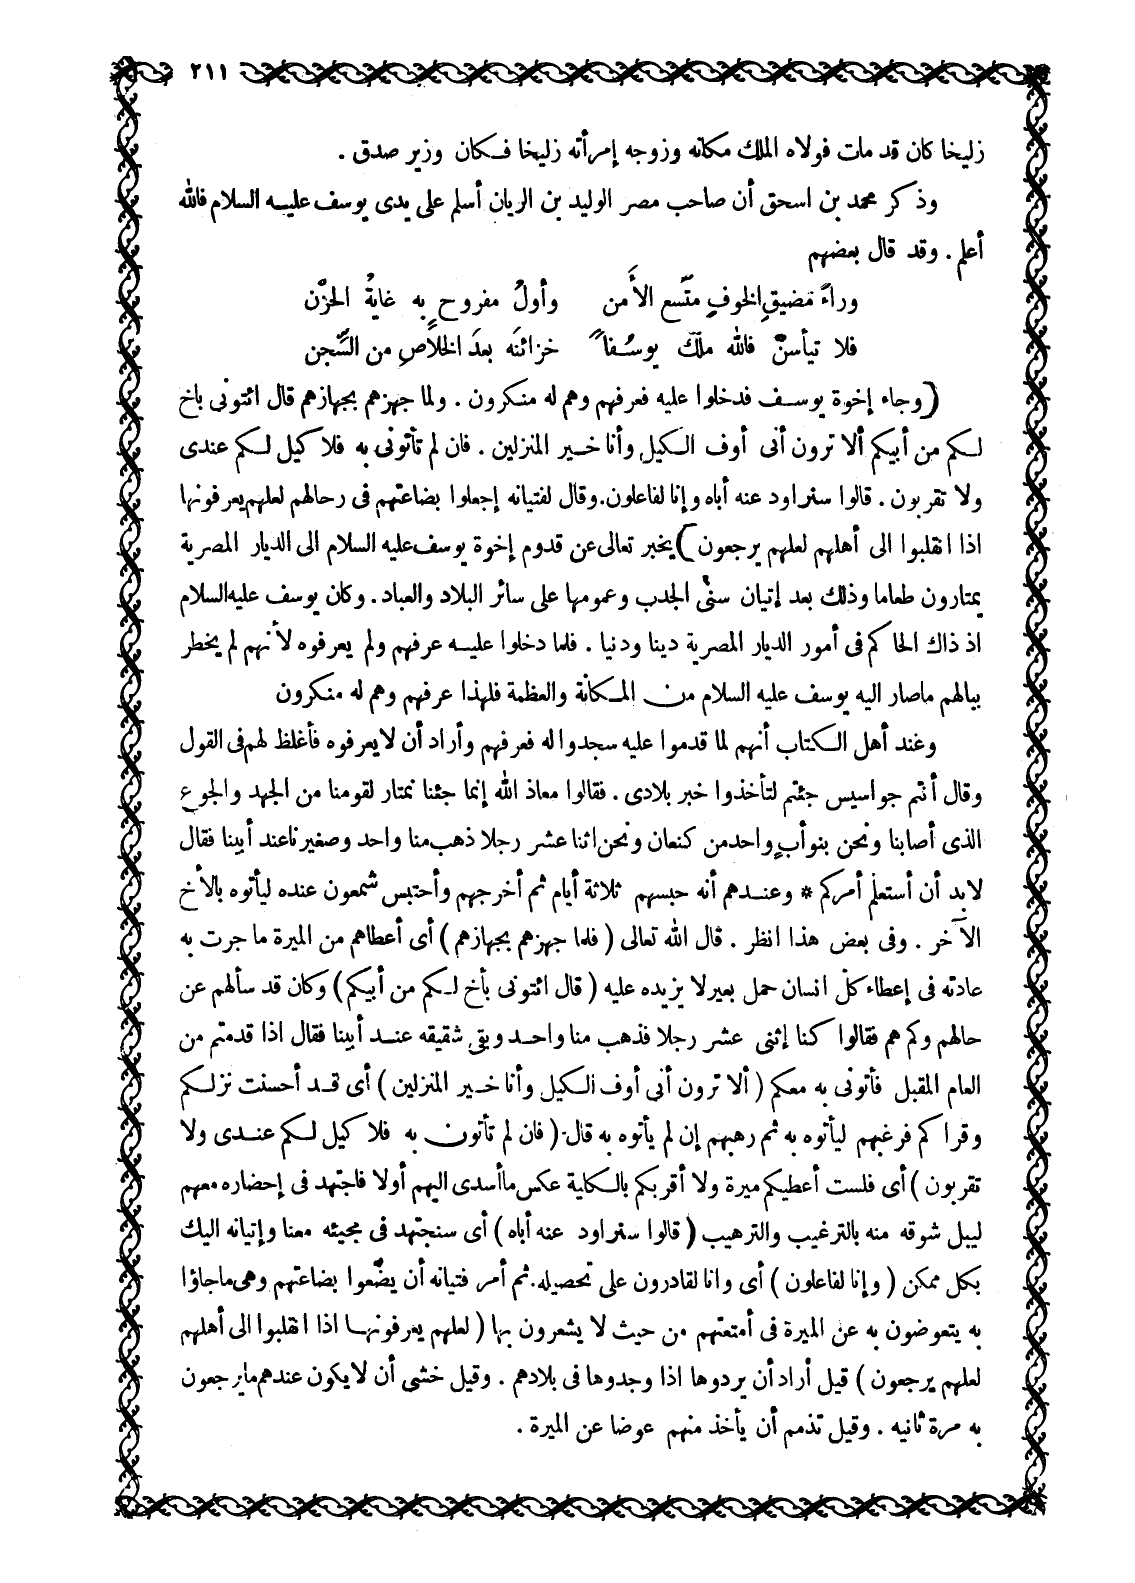 ٢١١
زليخا كان قد مات فولاه الملك مكانه وزوجه إمرأته زليخا فكان وزير صدق .
وذكر محمد بن اسحق أن صاحب مصر الوليد بن الريان أسلم على يدى يوسف عليه السلام فالله
أعلم . وقد قال بعضهم
وراءَ مَضيقِ الخوفِ متّسع الأَمن وأولُ مفروحٍ به غايةُ الحزْن
فلا تيأسنّ فالله ملّك يوسُفاً خزائنَه بعدَ الخَلاصِ من السّجن
( وجاء إخوة يوسف فدخلوا عليه فعرفهم وهم له منكرون . ولما جهزهم بجهازهم قال ائتونى بأخ
لكم من أبيكم ألا ترون أنى أوف الكيل وأنا خير المنزلين . فان لم تأتونى به فلا كيل لكم عندى
ولا تقربون . قالوا سنراود عنه أباه وإنا لفاعلون. وقال لفتيانه إجعلوا بضاعتهم فى رحالهم لعلهم يعرفونها
اذا انقلبوا الى أهلهم لعلهم يرجعون ) يخبر تعالى عن قدوم إخوة يوسف عليه السلام الى الديار المصرية
يمتارون طعاما وذلك بعد إتيان سنى الجدب وعمومها على سائر البلاد والعباد. وكان يوسف عليه السلام
اذ ذاك الحاكم فى أمور الديار المصرية دينا ودنيا . فلما دخلوا عليه عرفهم ولم يعرفوه لأنهم لم يخطر
ببالهم ماصار اليه يوسف عليه السلام من المكانة والعظمة فلهذا عرفهم وهم له منكرون
وعند أهل الكتاب أنهم لما قدموا عليه سجدوا له فعرفهم وأراد أن لايعرفوه فأغلظ لهم فى القول
وقال أنتم جواسيس جئتم لتأخذوا خبر بلادى . فقالوا معاذ الله إنما جئنا نمتار لقومنا من الجهد والجوع
الذى أصابنا ونحن بنو أبٍ واحد من كنعان ونحن اثنا عشر رجلا ذهب منا واحد وصغيرنا عند أبينا فقال
لابد أن أستعلم أمركم * وعندهم أنه حبسهم ثلاثة أيام ثم أخرجهم وأحتبس شمعون عنده ليأتوه بالأخ
الآخر . وفى بعض هذا انظر . قال الله تعالى ( فلما جهزهم بجهازهم ) أى أعطاهم من الميرة ما جرت به
عادته فى إعطاء كلّ انسان حمل بعير لا يزيده عليه ( قال ائتونى بأخ لكم من أبيكم ) وكان قد سألهم عن
حالهم وكم هم فقالوا كنا إثنى عشر رجلا فذهب منا واحد وبقى شقيقه عند أبينا فقال اذا قدمتم من
العام المقبل فأتونى به معكم ( ألا ترون أنى أوف الكيل وأنا خير المنزلين ) أى قد أحسنت نزلكم
وقراكم فرغبهم ليأتوه به ثم رهبهم إن لم يأتوه به قال ( فان لم تأتون به فلا كيل لكم عندى ولا
تقربون ) أى فلست أعطيكم ميرة ولا أقربكم بالكاية عكس ماأسدى اليهم أولا فاجتهد فى إحضاره معهم
ليبل شوقه منه بالترغيب والترهيب ( قالوا سنراود عنه أباه ) أى سنجتهد فى مجيئه معنا وإتيانه اليك
بكل ممكن ( وإنا لفاعلون ) أى وانا لقادرون على تحصيله. ثم أمر فتيانه أن يضّعوا بضاعتهم وهى ماجاؤا
به يتعوضون به عن الميرة فى أمتعتهم من حيث لا يشعرون بها ( لعلهم يعرفونها اذا انقلبوا الى أهلهم
لعلهم يرجعون ) قيل أراد أن يردوها اذا وجدوها فى بلادهم . وقيل خشى أن لا يكون عندهم مايرجعون
به مرة ثانيه . وقيل تذمم أن يأخذ منهم عوضا عن الميرة .